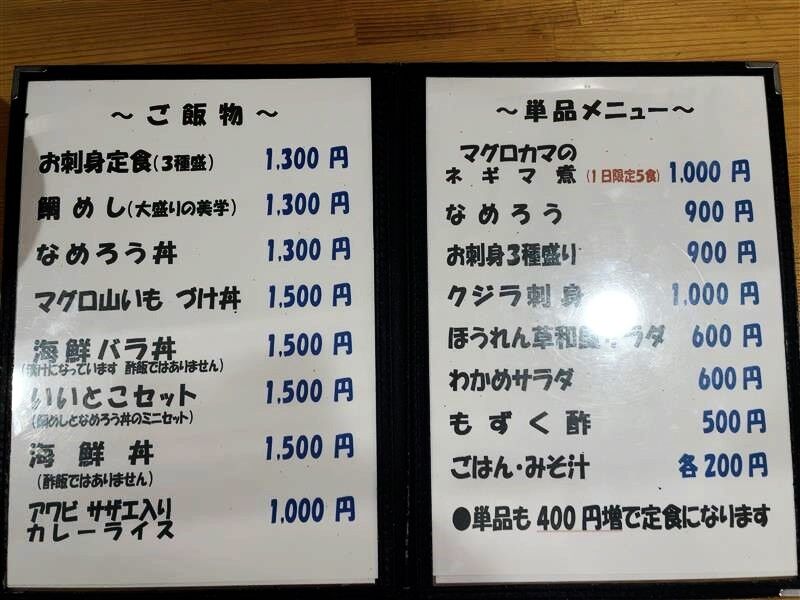 ～ご飯物～
お刺身定食(3種盛) 1,300 円
鯛めし(大盛りの美学) 1,300 円
なめろう丼 1,300 円
マグロ山いも づけ丼 1,500 円
海鮮バラ丼 1,500 円
(漬けになっています 酢飯ではありません)
いいとこセット 1,500 円
(鯛めしとなめろう丼のミニセット)
海鮮丼 1,500 円
(酢飯ではありません)
アワビ サザエ入り
カレーライス 1,000 円
～単品メニュー～
マグロカマの
ネギマ煮 (1日限定5食) 1,000 円
なめろう 900 円
お刺身3種盛り 900 円
クジラ刺身 1,000 円
ほうれん草和風サラダ 600 円
わかめサラダ 600 円
もずく酢 500 円
ごはん・みそ汁 各 200 円
●単品も 400 円増で定食になります